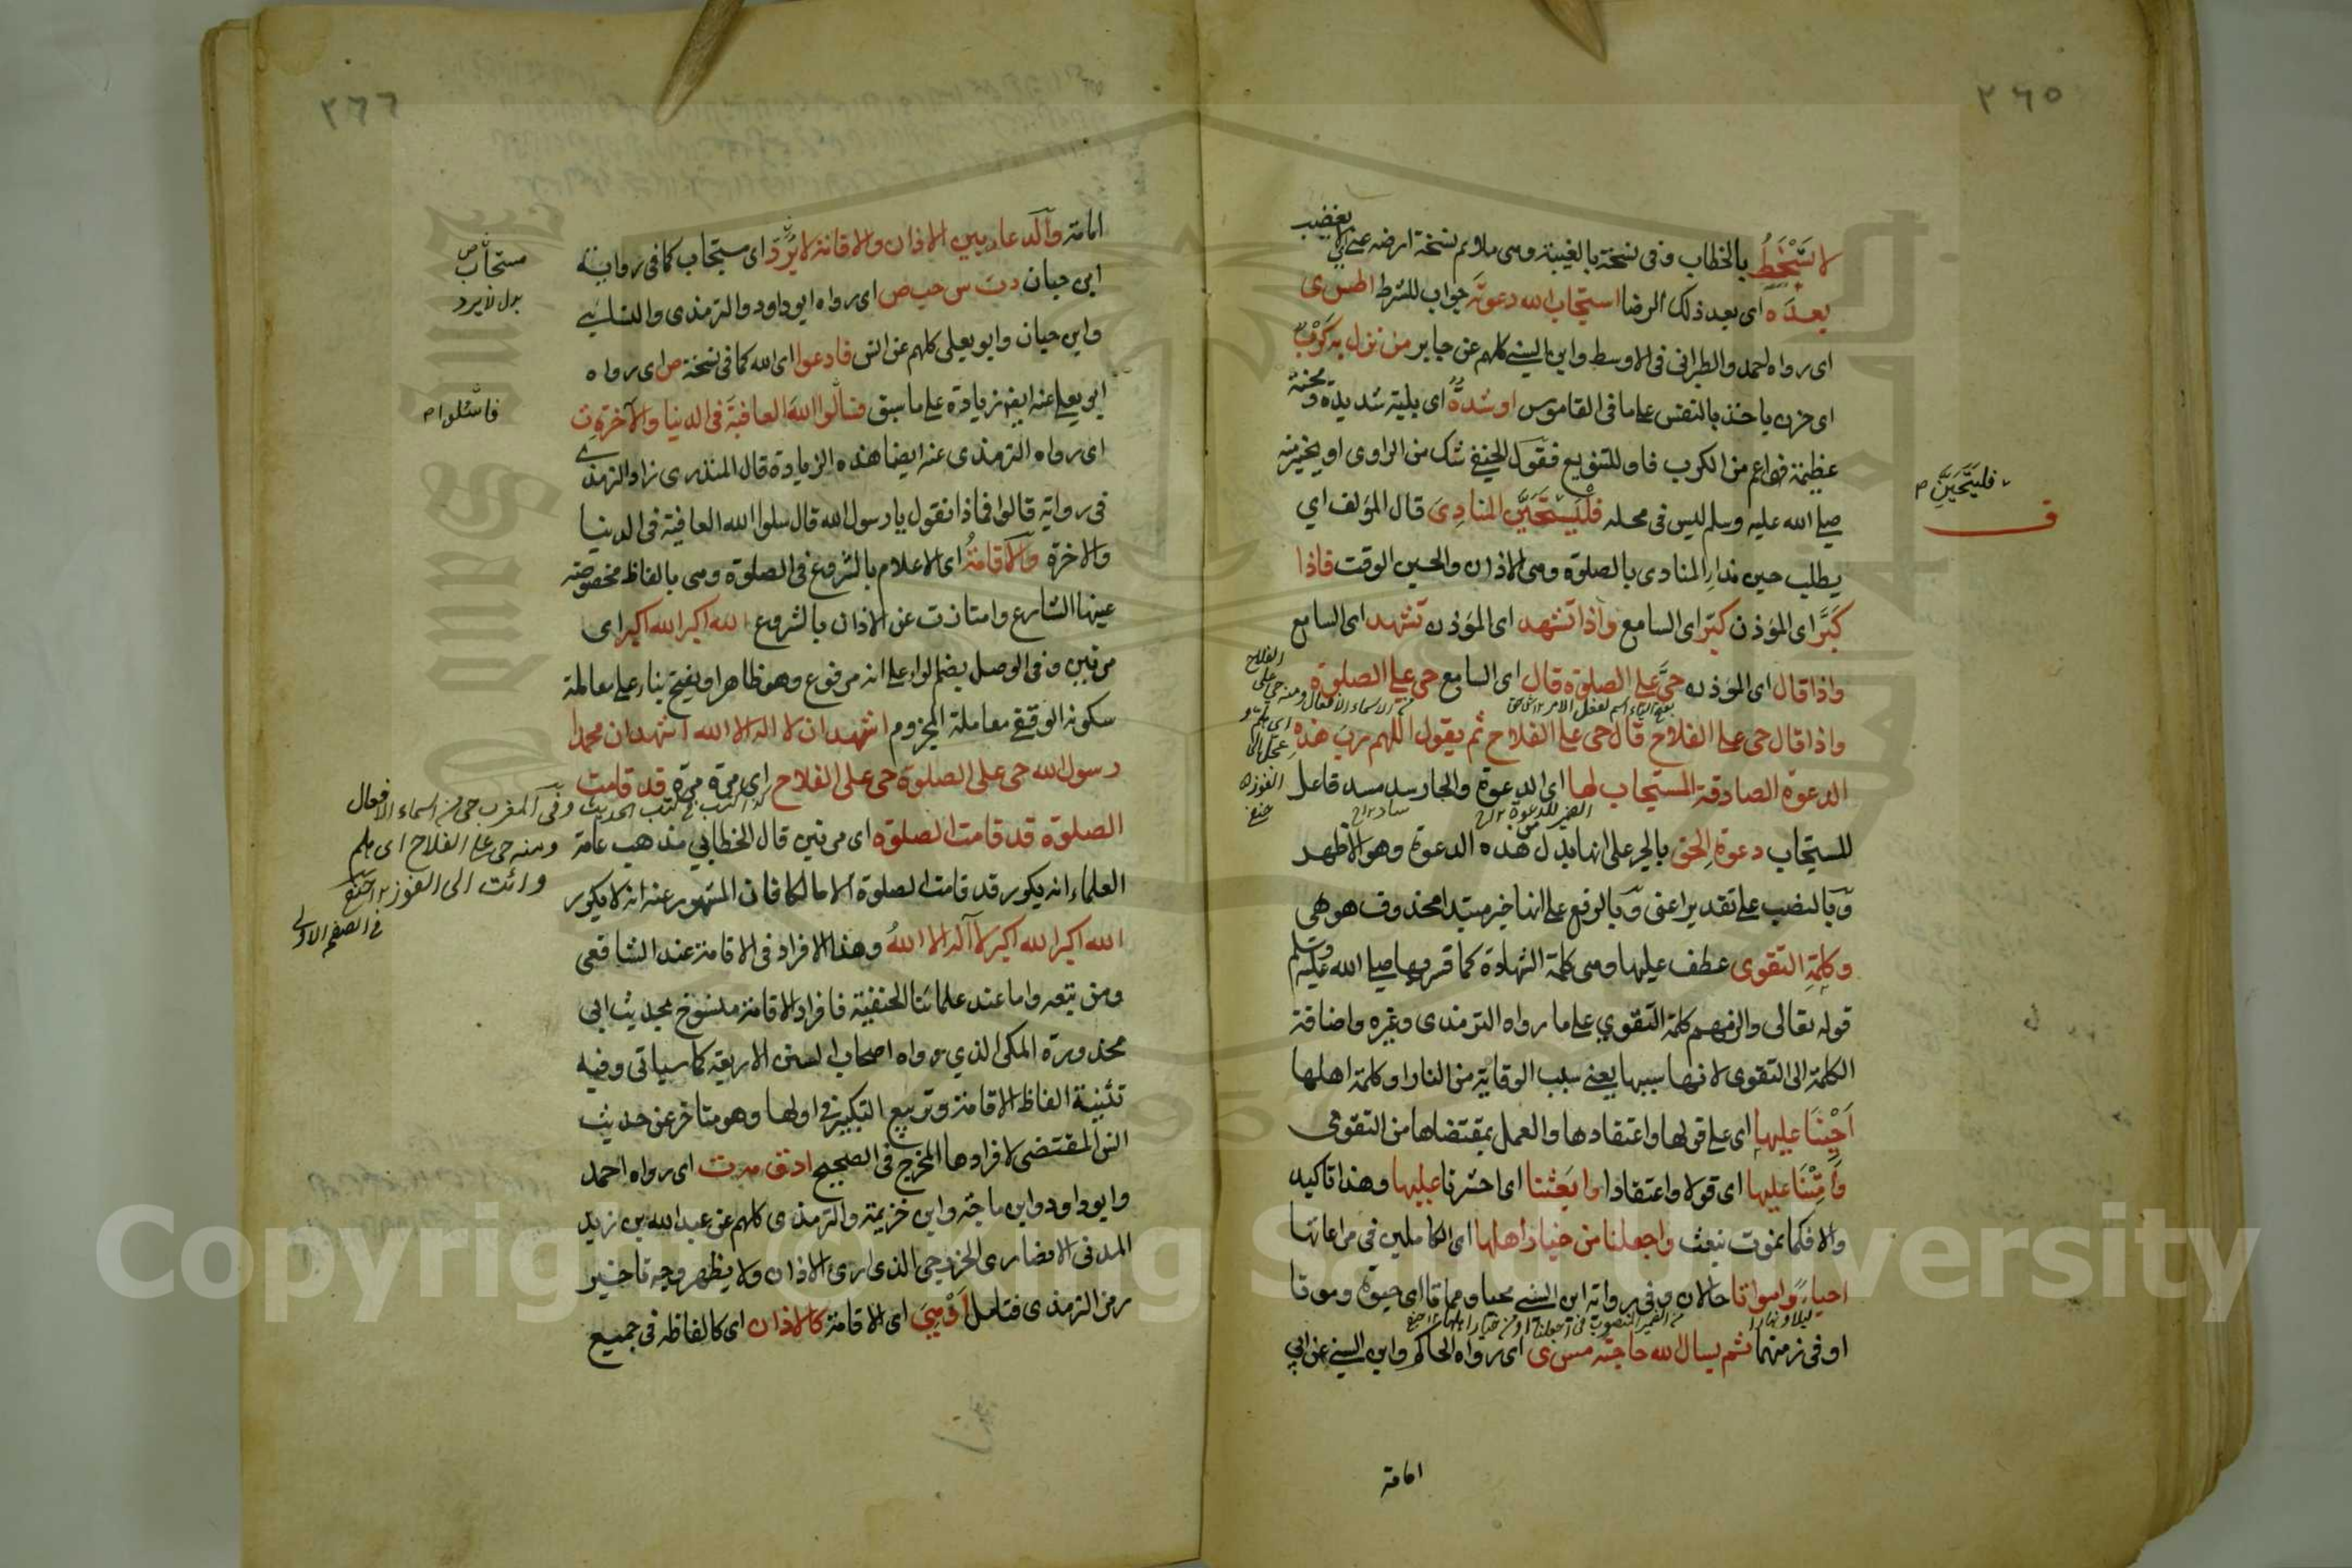 ٢٦٥
لا تسخط بالخطاب وفى نسخة بالغيبة وهى ملايم نسخة ارضه عنى اى لا يغضب
بعده اى بعد ذلك الرضا استجاب الله دعوته جواب للشرط اطس ى
اى رواه احمد والطبرانى فى الاوسط وابن السنى كلهم عن جابر من نزل به كرب
اى حزن ياخذ بالنفس على ما فى القاموس او شدة اى بلية شديدة ومحنة
عظيمة فهو اعم من الكرب فاو للتنويع فقول الحنفى شك من الراوى او تخيير منه
صلى الله عليه وسلم ليس فى محله فليتحين المنادى قال المؤلف اي
يطلب حين نداء المنادى بالصلوة وهى الاذان والحين الوقت فاذا
كبر اى المؤذن كبر اى السامع واذا تشهد اى المؤذن تشهد اى السامع
واذا قال اى المؤذن حى على الصلوة قال اى السامع حى على الصلوة
واذا قال حى على الفلاح قال حى على الفلاح ثم يقول اللهم رب هذه
الدعوة الصادقة المستجاب لها اى الدعوة والجار سد مسد فاعل
للستجاب دعوة الحق بالجر على انها بدل من هذه الدعوة وهو الاظهر
وبالنصب على تقدير اعنى وبالرفع على انها خبر مبتدا محذوف هو هى
وكلمة التقوى عطف عليها وهى كلمة الشهادة كما فسر بها صلى الله عليه وسلم
قوله تعالى والزمهم كلمة التقوي على ما رواه الترمذى وغيره واضافة
الكلمة الى التقوى لانها سببها يعنى سبب الوقاية من النار او كلمة اهلها
احينا عليها اى على قولها واعتقادها والعمل بمقتضاها من التقوى
وامتنا عليها اى قولا واعتقادا وابعثنا اى احشرنا عليها وهذا تاكيد
والا فكما نموت نبعث واجعلنا من خيار اهلها اى الكاملين فى مراعاتها
احياء وامواتا حالان وفى رواية ابن السنى محيا ومماتا اى حيوة وموتا
او فى زمنهما ثم يسال الله حاجته مس ى اى رواه الحاكم وابن السنى عن ابي
فليتحين م
ف
امامة
٢٦٦
امامة والدعاء بين الاذان والاقامة لا يرد اى مستجاب كما فى رواية
ابى حبان دت س حب ص اى رواه ابو داود والترمذى والنسائي
وابن حبان وابو يعلى كلهم عن انس فادعوا اى الله كما فى نسخة ص اى رواه
ابى يعلى عنه ايض زيادة على ما سبق فسالوا الله العافية فى الدنيا والآخرة ت
اى رواه الترمذى عنه ايضا هذه الزيادة قال المنذرى زاد الترمذي
فى رواية قالوا فماذا نقول يا رسول الله قال سلوا الله العافية فى الدنيا
والاخرة والاقامة اى الاعلام بالشروع فى الصلوة وهى بالفاظ مخصوصة
عينها الشارع وامتازت عن الاذان بالشروع الله اكبر الله اكبر اى
مرتين وفى الوصل بضم الراء على انه مرفوع وهو ظاهر او بفتح بناء على معاملة
سكونه الوقفى معاملة المجزوم اشهد ان لا اله الا الله اشهد ان محمدا
رسول الله حى على الصلوة حى على الفلاح اى مرة مرة قد قامت
الصلوة قد قامت الصلوة اى مرتين قال الخطابي مذهب عامة
العلماء انه يكرر قد قامت الصلوة الا مالكا فان المشهور عنه انه لا يكرر
الله اكبر الله اكبر لا اله الا الله وهذا الافراد فى الاقامة عند الشافعى
ومن تبعه واما عند علمائنا الحنفية فافراد الاقامة منسوخ بحديث ابى
محذورة المكى الذي رواه اصحاب السنن الاربعة كما سياتى وفيه
تثنية الفاظ الاقامة وتربيع التكبير فى اولها وهو متاخر عن حديث
انس المقتضى لافرادها المخرج فى الصحيح ادق مه ت اى رواه احمد
وابو داود وابن ماجة وابن خزيمة والترمذى كلهم عن عبد الله بن زيد
المدنى الانصارى الخزرجى الذى ارى الاذان ولا يظهر وجه تاخير
رمز الترمذى فتامل او هى اى الاقامة كالاذان اى كالفاظه فى جميع
مستجاب ص
بدل لا يرد
فاسئلوا م
وفى المغرب حى من اسماء الافعال
ومنه حى على الفلاح اى هلم
وائت الى الفوز
فى الصفحة الاولى
Copyright © King Saud University